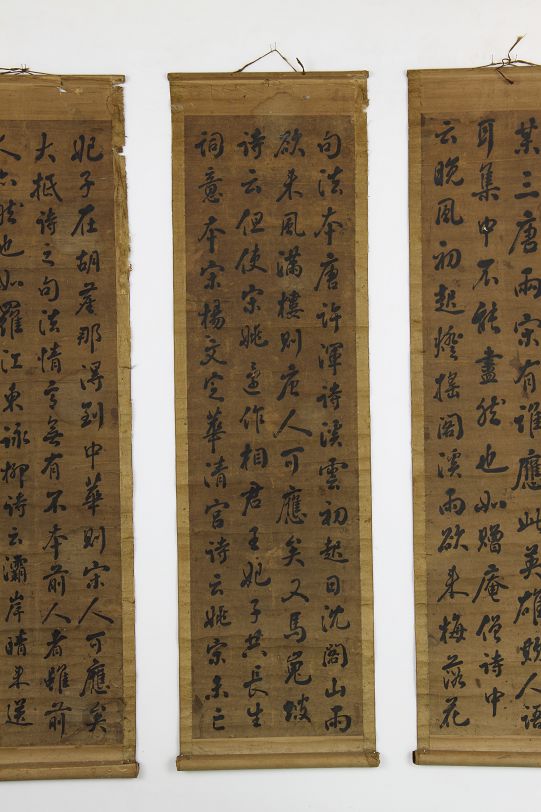 某三唐兩宋有誰應此英雄欺人語
耳集中不能盡然也如贈庵僧詩中
云晚風初起燈搖閣溪雨欲來梅落花
句法本唐許渾詩溪雲初起日沈閣山雨
欲來風滿樓則唐人可應矣又馬嵬坡
詩云但使宋姚還作相君王妃子共長生
詞意本宋楊文定華清宮詩云姚宋未亡
妃子在胡塵那得到中華則宋人可應矣
大抵詩之句法情無有不本前人者雖前
人亦然也如羅江東詠柳詩云灞岸晴來送